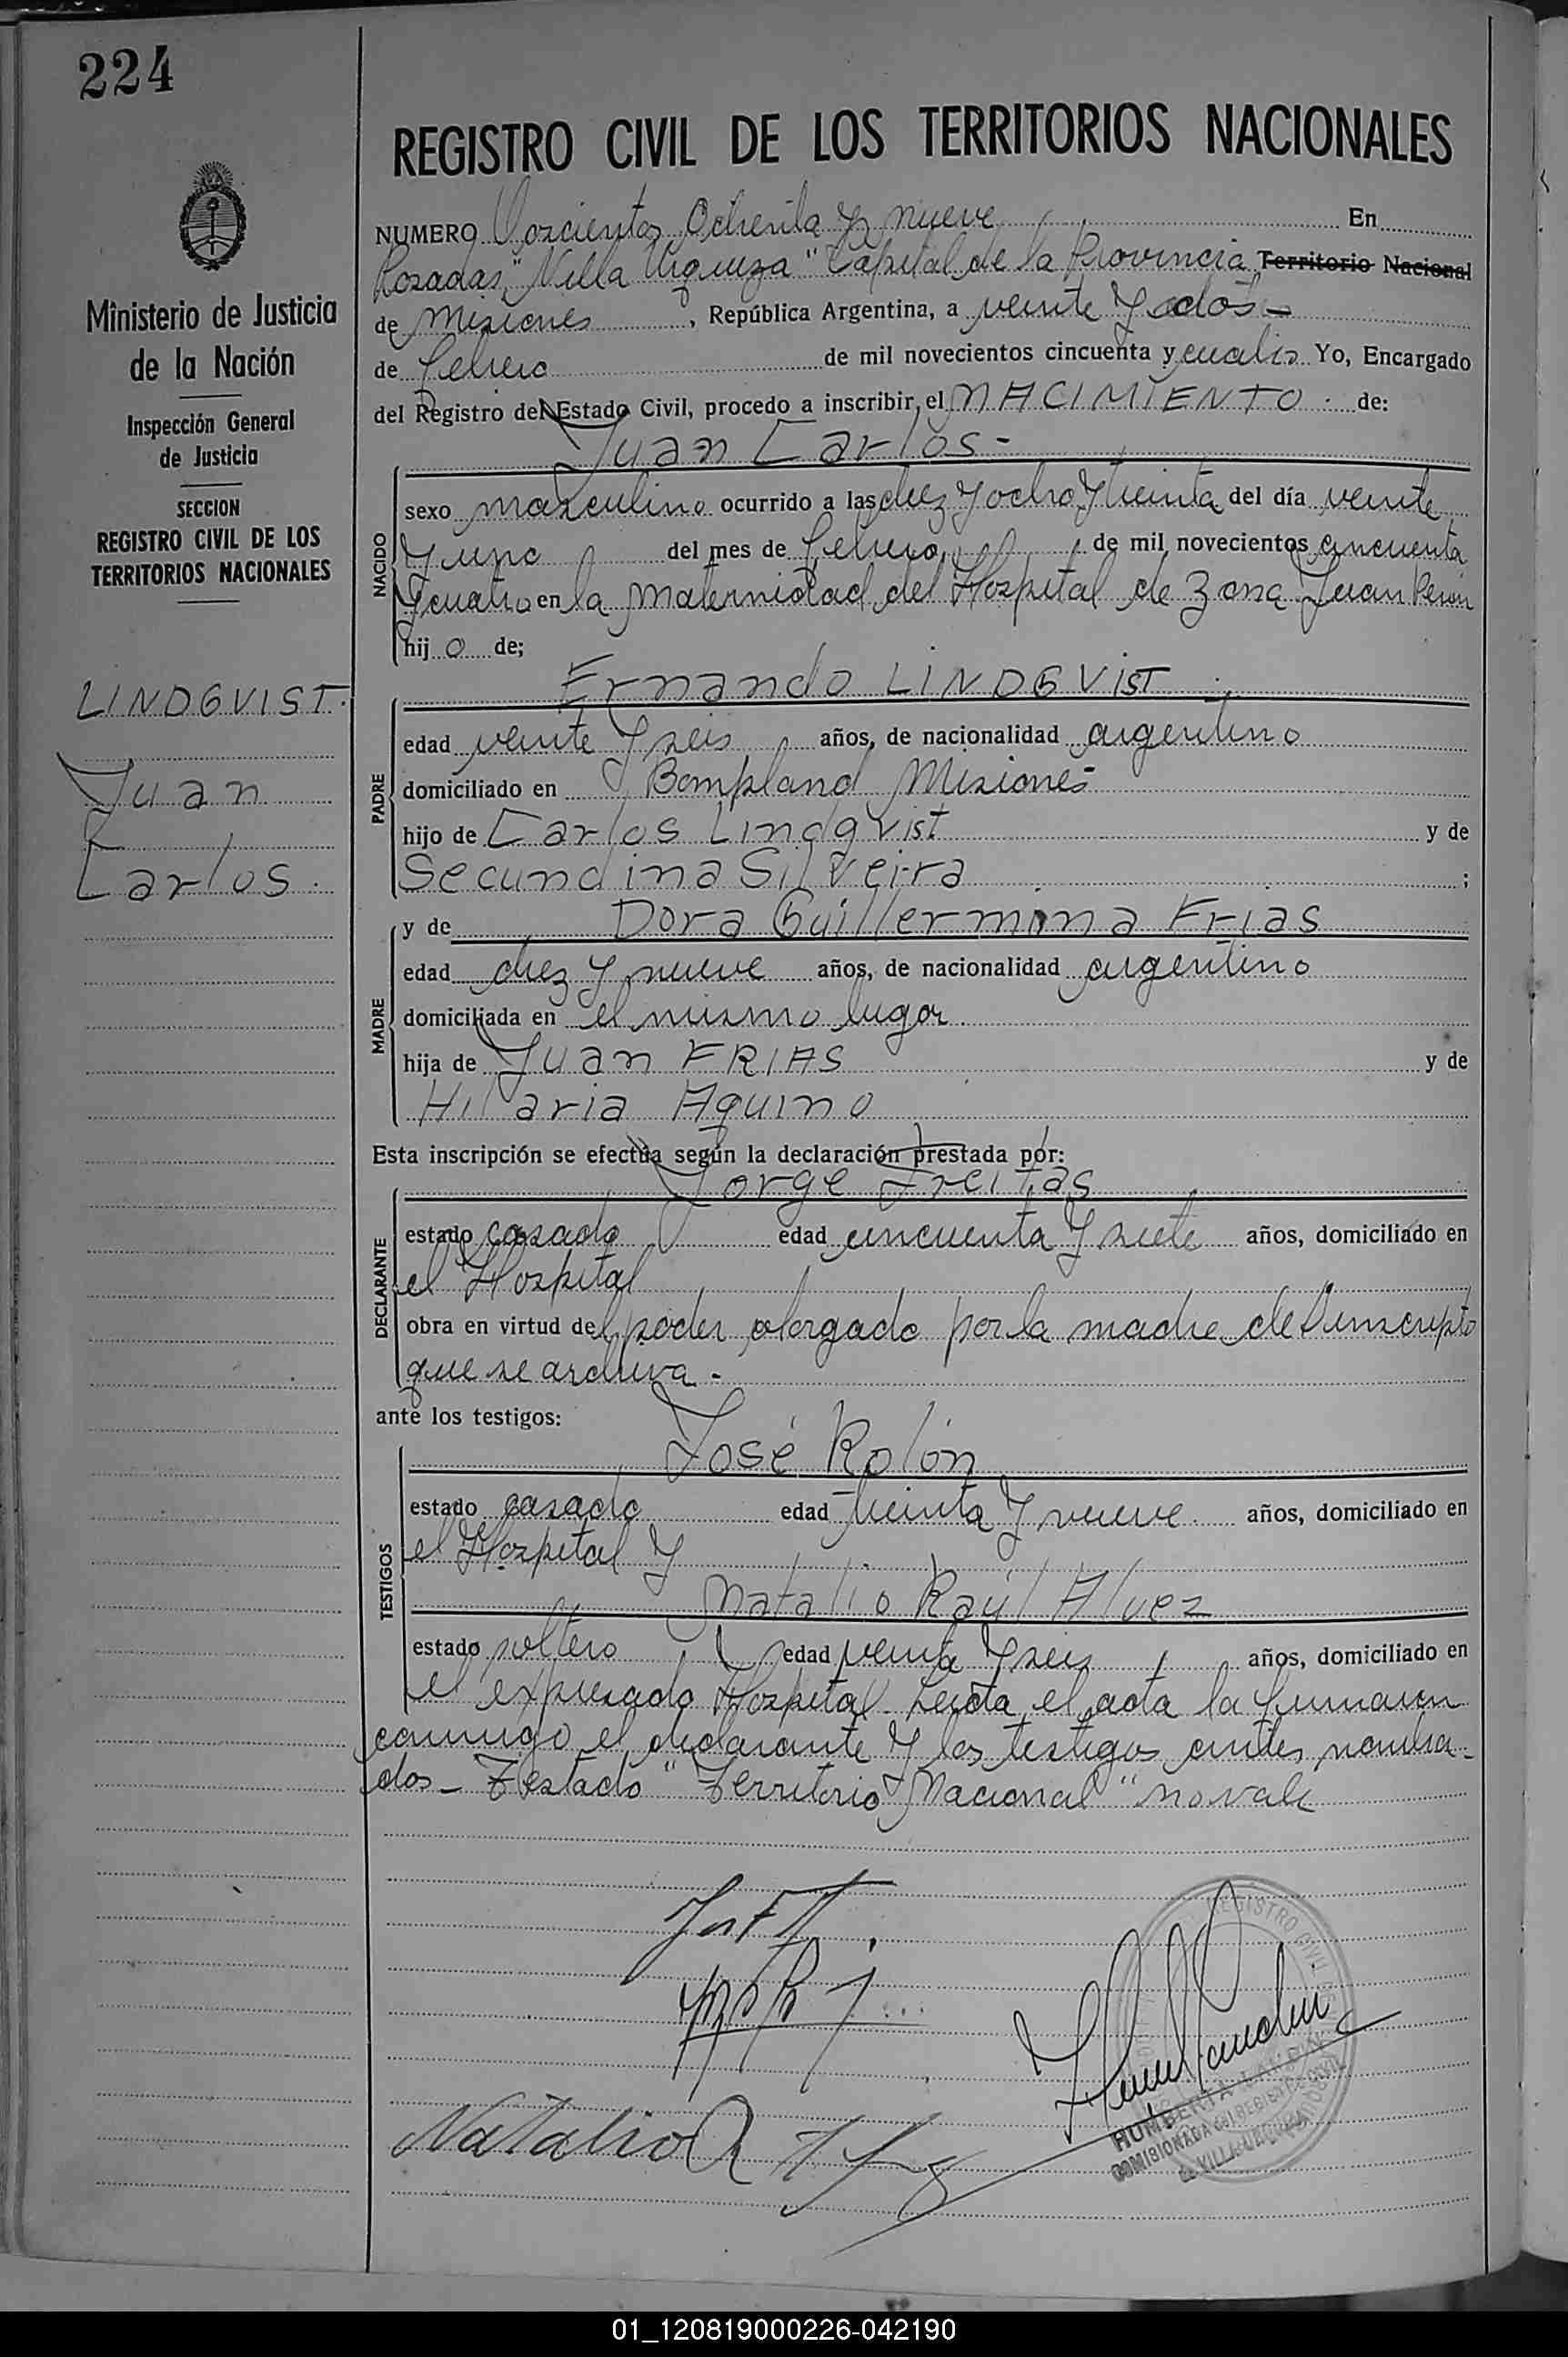 224
REGISTRO CIVIL DE LOS TERRITORIOS NACIONALES
Ministerio de Justicia
de la Nación
Inspección General
de Justicia
SECCION
REGISTRO CIVIL DE LOS
TERRITORIOS NACIONALES
LINDGVIST.
Juan
Carlos.
NUMERO Doscientos Ochenta y nueve En
Posadas, "Villa Urquiza" Capital de la Provincia Territorio Nacional
de Misiones, República Argentina, a veinte y dos-
de febrero de mil novecientos cincuenta y cuatro Yo, Encargado
del Registro del Estado Civil, procedo a inscribir el NACIMIENTO. de:
Juan Carlos-
NACIDO
sexo masculino ocurrido a las diez y ocho y treinta del día veinte
y uno del mes de febrero de mil novecientos cincuenta
y cuatro en la maternidad del Hospital de Zona Juan Perón
hijo de;
Ernando LINDGVIST
PADRE
edad veinte y seis años, de nacionalidad argentino
domiciliado en Bompland Misiones-
hijo de Carlos Lindgvist y de
Secundina Silveira ;
MADRE
y de Dora Guillermina Frias
edad diez y nueve años, de nacionalidad argentino
domiciliada en el mismo lugar.
hija de Juan FRIAS y de
Hilaria Aquino
Esta inscripción se efectúa según la declaración prestada por:
Jorge Freitas
DECLARANTE
estado casado edad cincuenta y siete años, domiciliado en
el Hospital
obra en virtud del poder otorgado por la madre del inscripto
que se archiva.-
ante los testigos:
José Rolón
TESTIGOS
estado casado edad treinta y nueve. años, domiciliado en
el Hospital y
Natalio Raúl Alvez
estado soltero edad veinte y seis años, domiciliado en
el expresado Hospital. Leida el acta la firmaron
conmigo el declarante y los testigos antes nombra-
dos- Testado "Territorio Nacional" no vale
Natalio R
REGISTRO CIVIL
COMISIONADA
01_120819000226-042190